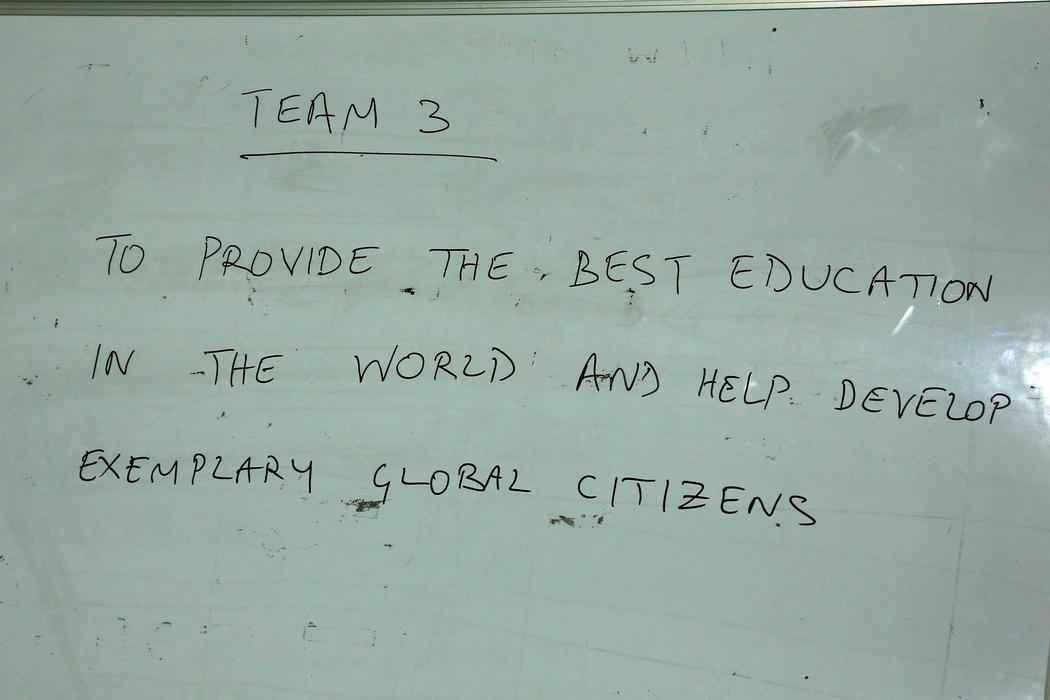 TEAM 3
TO PROVIDE THE BEST EDUCATION
IN THE WORLD AND HELP DEVELOP
EXEMPLARY GLOBAL CITIZENS